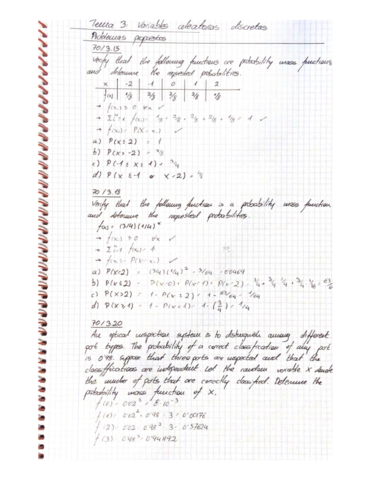 Tema 3: Variables aleatorias discretas
Problemas propuestos
70/3.15
Verify that the following functions are probability mass functions,
and determine the requested probabilities.
x -2 -1 0 1 2
f(x) 1/8 2/8 2/8 2/8 1/8
→ f(x) ≥ 0 ✓
→ f(x) = 1/8 + 2/8 + 2/8 + 2/8 + 1/8 = 1 ✓
→ f(x) = P(X = x) ✓
a) P(X ≤ 2) = 1
b) P(X > -2) =
c) P(-1 ≤ X ≤ 1) =
d) P(X ≤ -1 or X = 2) =
Verify that the following function is a probability mass function
and determine the requested probabilities.
f(x) = (3/4)(1/4)^x
→ f(x) ≥ 0 ✓
→ f(x) = 1
→ f(x) = P(X = x) ✓
a) P(X=2) = (3/4)(1/4)² = 3/64 =
b) P(X ≤ 2) = P(X=0) + P(X=1) + P(X=2) =
c) P(X>2) = 1 - P(X ≤ 2) = 1 - 63/64 = 1/64
d) P(X ≥ 1) =
70/3.20
An optical inspection system is to distinguish among different
part types. The probability of a correct classification of any part
is 0.98. Suppose that three parts are inspected and that the
classifications are independent. Let the random variable X denote
the number of parts that are correctly classified. Determine the
probability mass function of X.
f(0) = 0.02³ =
f(1) = 0.02² · 0.98 · 3 =
f(2) = 0.02 · 0.98² · 3 =
f(3) = 0.98³ = 0.941192